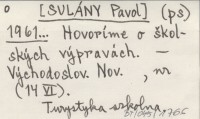 o [SULÁNY Pavol] (ps)
1961... Hovoríme o škol-
ských výpravách. —
Východoslov. Nov. , nr
(14 VI).
Turystyka szkolna